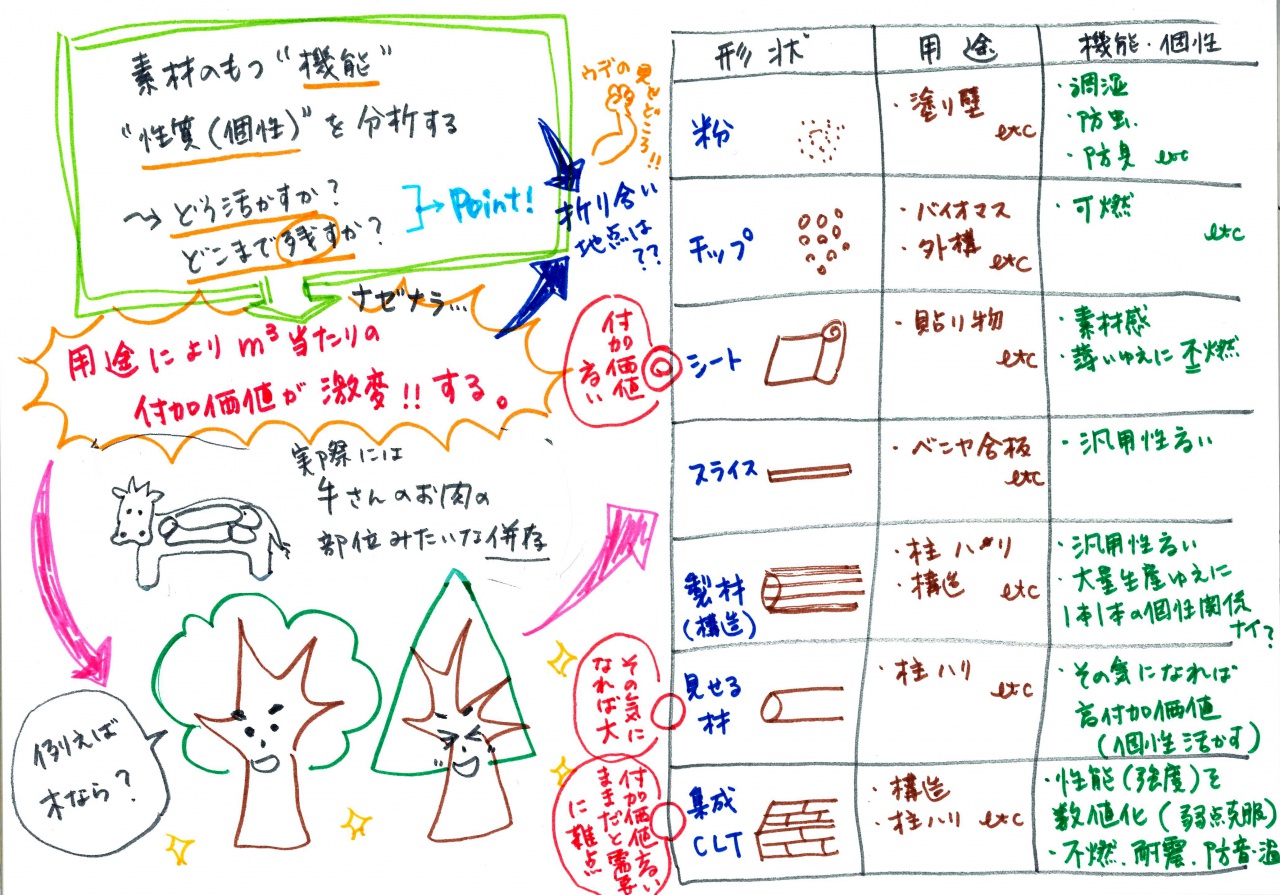 素材のもつ"機能"
"性質(個性)"を分析する
〜→ どう活かすか?
どこまで残すか?
→ Point!
ウデの見せどころ!!
折り合い
地点は
??
ナゼナラ…
用途によりm³当たりの
付加価値が激変!!する。
実際には
牛さんのお肉の
部位みたいな併存
例えば
木なら?
形状 用途 機能・個性
粉
・塗り壁
etc
・調湿
・防虫
・防臭 etc
チップ
・バイオマス
・外構
etc
・可燃
etc
付加価値
高い
◎
シート
・貼り物
etc
・素材感
・薄いゆえに不燃
スライス
・ベニヤ合板
etc
・汎用性高い
製材
(構造)
・柱 ハリ
・構造 etc
・汎用性高い
・大量生産ゆえに
1本1本の個性関係
ナイ?
その気に
なれば大
見せる
材
・柱 ハリ
etc
・その気になれば
高付加価値
(個性活かす)
付加価値高い
ままだと需要
に難点
集成
CLT
・構造
・柱ハリ etc
・性能(強度)を
数値化(弱点克服)
・不燃.耐震.防音・温